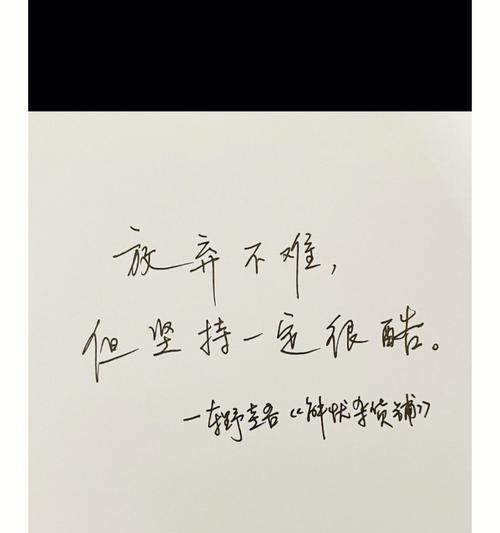 放弃不难，
但坚持一定很酷。
一东野圭吾《解忧杂货铺》